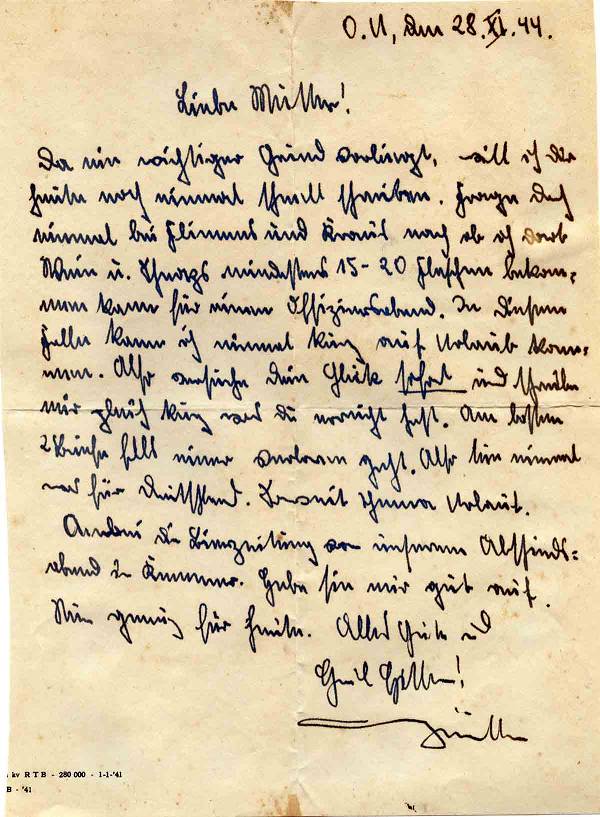 O.U, den 28.XI.44.
Liebe Mutter!
Da ein wichtiger Grund vorliegt, will ich dir
heute noch einmal schnell schreiben. Frage doch
einmal bei Flimms und Kraus nach ob ich dort
Wein u. Schnaps mindestens 15-20 Flaschen bekom=
men kann für einen Offiziersabend. In diesem
Falle kann ich einmal kurz auf Urlaub kom=
men. Also versuche dein Glück sofort und schreibe
mir gleich kurz was du erreicht hast. Am besten
2 Briefe falls einer verloren geht. Also tue einmal
was für Deutschland. Soweit Thema Urlaub.
Anbei die Bierzeitung von unserem Abschieds=
abend in . Hebe sie mir gut auf.
Nun genug für heute. Alles Gute und
Heil Hitler!
kv RTB - 280 000 - 1-1-'41
B - '41